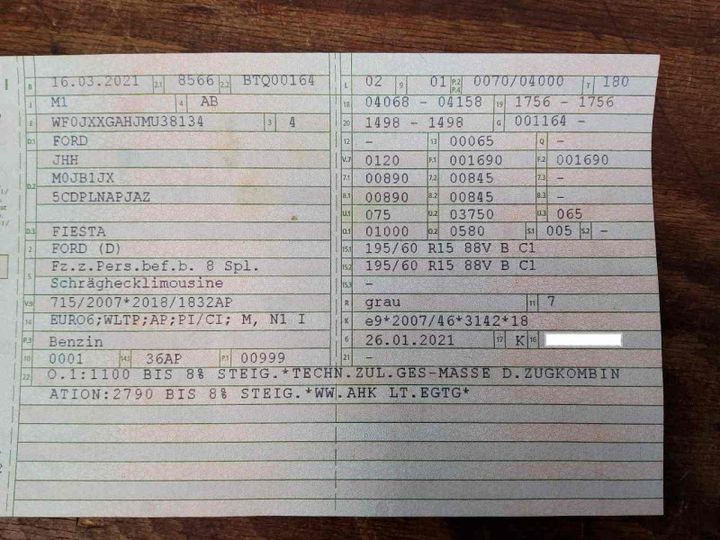 B 16.03.2021 2.1 8566 2.2 BTQ00164
J M1 4 AB
E WF0JXXGAHJMU38134 3 4
D.1 FORD
JHH
D.2 M0JB1JX
5CDPLNAPJAZ
D.3 FIESTA
2 FORD (D)
5 Fz.z.Pers.bef.b. 8 Spl.
Schräghecklimousine
V.9 715/2007*2018/1832AP
14 EURO6;WLTP;AP;PI/CI; M, N1 I
P.3 Benzin
10 0001 14.1 36AP P.1 00999
L 02 9 01 P.2 P.4 0070/04000 T 180
18 04068 - 04158 19 1756 - 1756
20 1498 - 1498 G 001164 -
12 - 13 00065 Q -
V.7 0120 F.1 001690 F.2 001690
7.1 00890 7.2 00845 7.3 -
8.1 00890 8.2 00845 8.3 -
U.1 075 U.2 03750 U.3 065
O.1 01000 O.2 0580 S.1 005 S.2 -
15.1 195/60 R15 88V B C1
15.2 195/60 R15 88V B C1
15.3 -
R grau 11 7
K e9*2007/46*3142*18
6 26.01.2021 17 K 16
21 -
22 O.1:1100 BIS 8% STEIG.*TECHN.ZUL.GES-MASSE D.ZUGKOMBIN
ATION:2790 BIS 8% STEIG.*WW.AHK LT.EGTG*